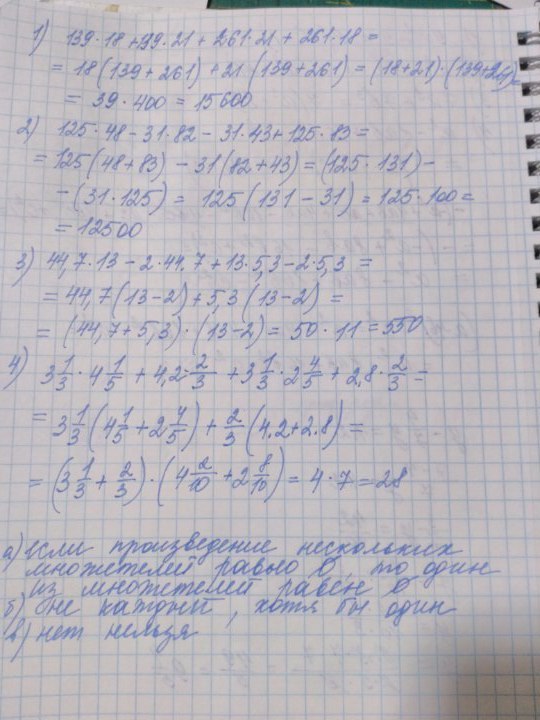 1) 139·18 + 99·21 + 261·21 + 261·18 =
= 18(139+261) + 21·(139+261) = (18+21)·(139+261)=
= 39·400 = 15600
2) 125·48 - 31·82 - 31·43 + 125·83 =
= 125(48+83) - 31(82+43) = (125·131) -
- (31·125) = 125(131 - 31) = 125·100 =
= 12500
3) 44,7·13 - 2·44.7 + 13·5,3 - 2·5,3 =
= 44,7(13-2) + 5,3(13-2) =
= (44,7+5,3)·(13-2) = 50·11 = 550
4) 3 1/3 · 4 1/5 + 4,2· 2/3 + 3 1/3 · 2 4/5 + 2,8· 2/3 =
= 3 1/3 (4 1/5 + 2 4/5) + 2/3 (4.2+2.8) =
= (3 1/3 + 2/3)·(4 2/10 + 2 8/10) = 4·7 = 28
а) если произведение нескольких
множетелей равно 0, то один
из множетелей равен 0
б) не каждый, хотя бы один
в) нет нельзя